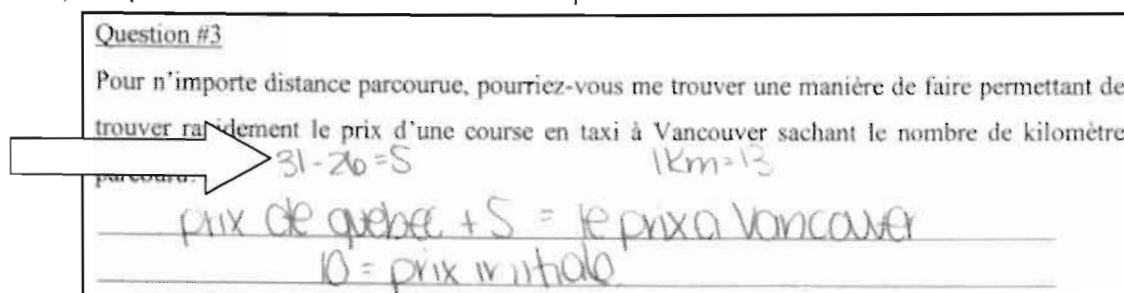 Question #3
Pour n'importe distance parcourue, pourriez-vous me trouver une manière de faire permettant de
trouver rapidement le prix d'une course en taxi à Vancouver sachant le nombre de kilomètre
parcouru?
31-26=5 1km=13
prix de quebec + 5 = le prix a Vancouver
10 = prix initiale